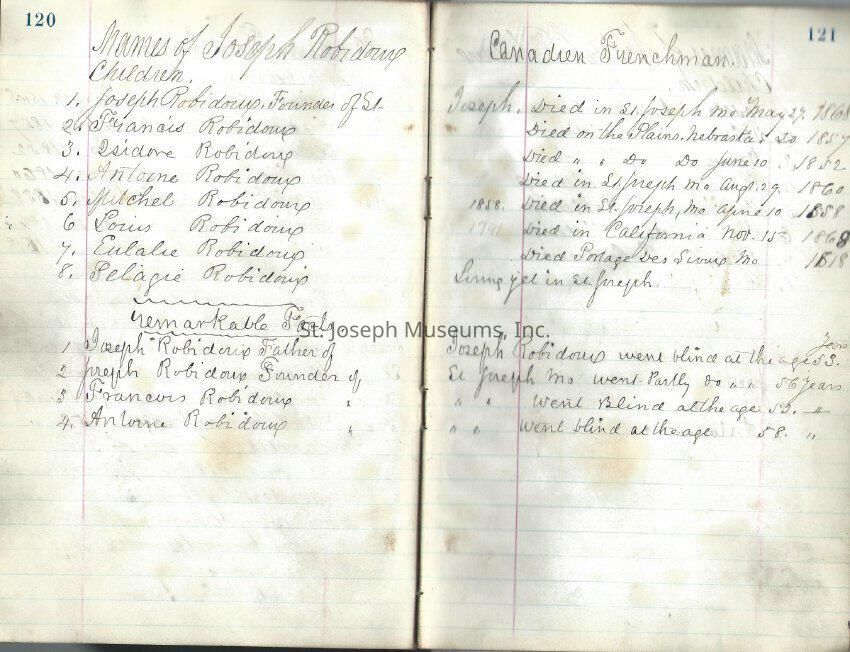 120
Names of Joseph Robidoux
Children.
1. Joseph Robidoux, Founder of St.
2. Francis Robidoux
3. Isidore Robidoux
4. Antoine Robidoux
5. Mitchel Robidoux
6 Louis Robidoux
7. Eulalie Robidoux
8. Pelagie Robidoux
remarkable Facts
1 Joseph Robidoux Father of
2 Joseph Robidoux Founder of
3 Francois Robidoux "
4. Antoine Robidoux "
121
Canadien Frenchman.
Joseph. Died in St. Joseph Mo May 27. 1868
Died on the Plains. Nebraska 1857
Died " " Do Do June 10 1852
Died in St Joseph Mo Augt. 29. 1860
1858. Died in St. Joseph, Mo Aprie 10 1858
1791 Died in California Nov. 15 1868
Died Portage Des Sioux Mo 1818
Living yet in St. Joseph.
Joseph Robidoux went blind at the age 53. years
St Joseph Mo went Partly Do " " 56 years
" " Went Blind at the age 53. "
" " Went blind at the age 58. "
St. Joseph Museums, Inc.